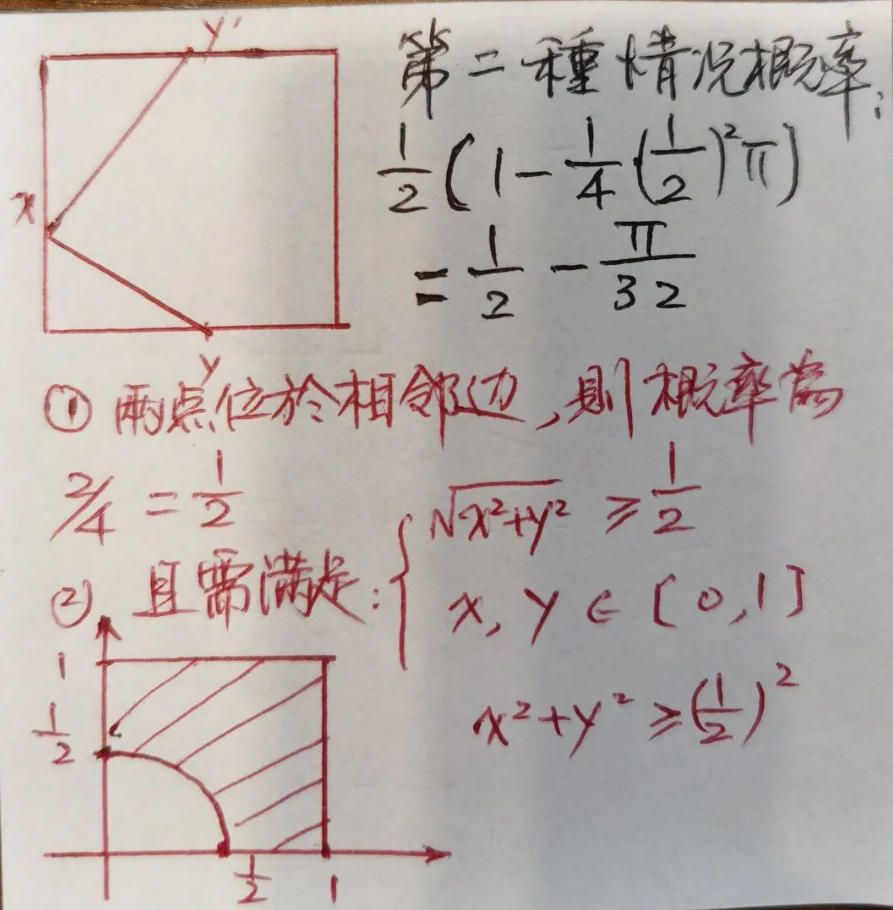 y'
x
y
第二種情况概率:
1/2(1-1/4(1/2)²π)
=1/2-π/32
① 兩点位於相邻边,则概率為
2/4=1/2
② 且需满足:{√x²+y² ≥ 1/2
x, y ∈ [0,1]
x²+y² ≥ (1/2)²
1
1/2
1/2
1